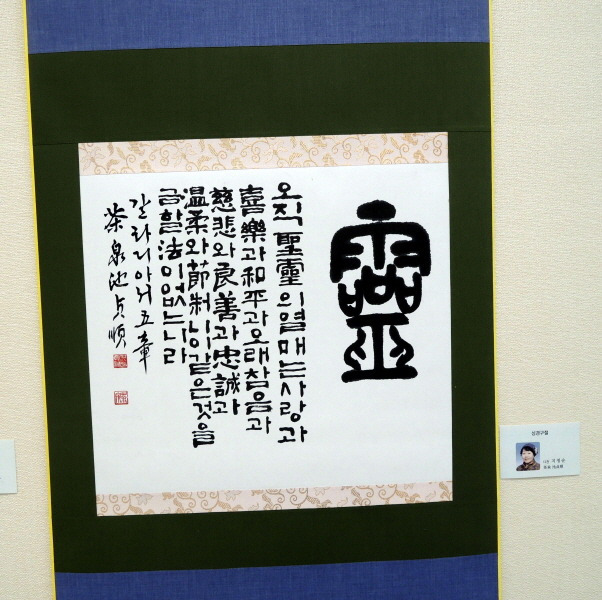 靈
오직 聖靈의 열매는 사랑과
喜樂과 和平과 오래참음과
慈悲와 良善과 忠誠과
温柔와 節制니 이같은 것을
금할 法이 없느니라
갈라디아서 五章
茶泉 池貞順
성경구절